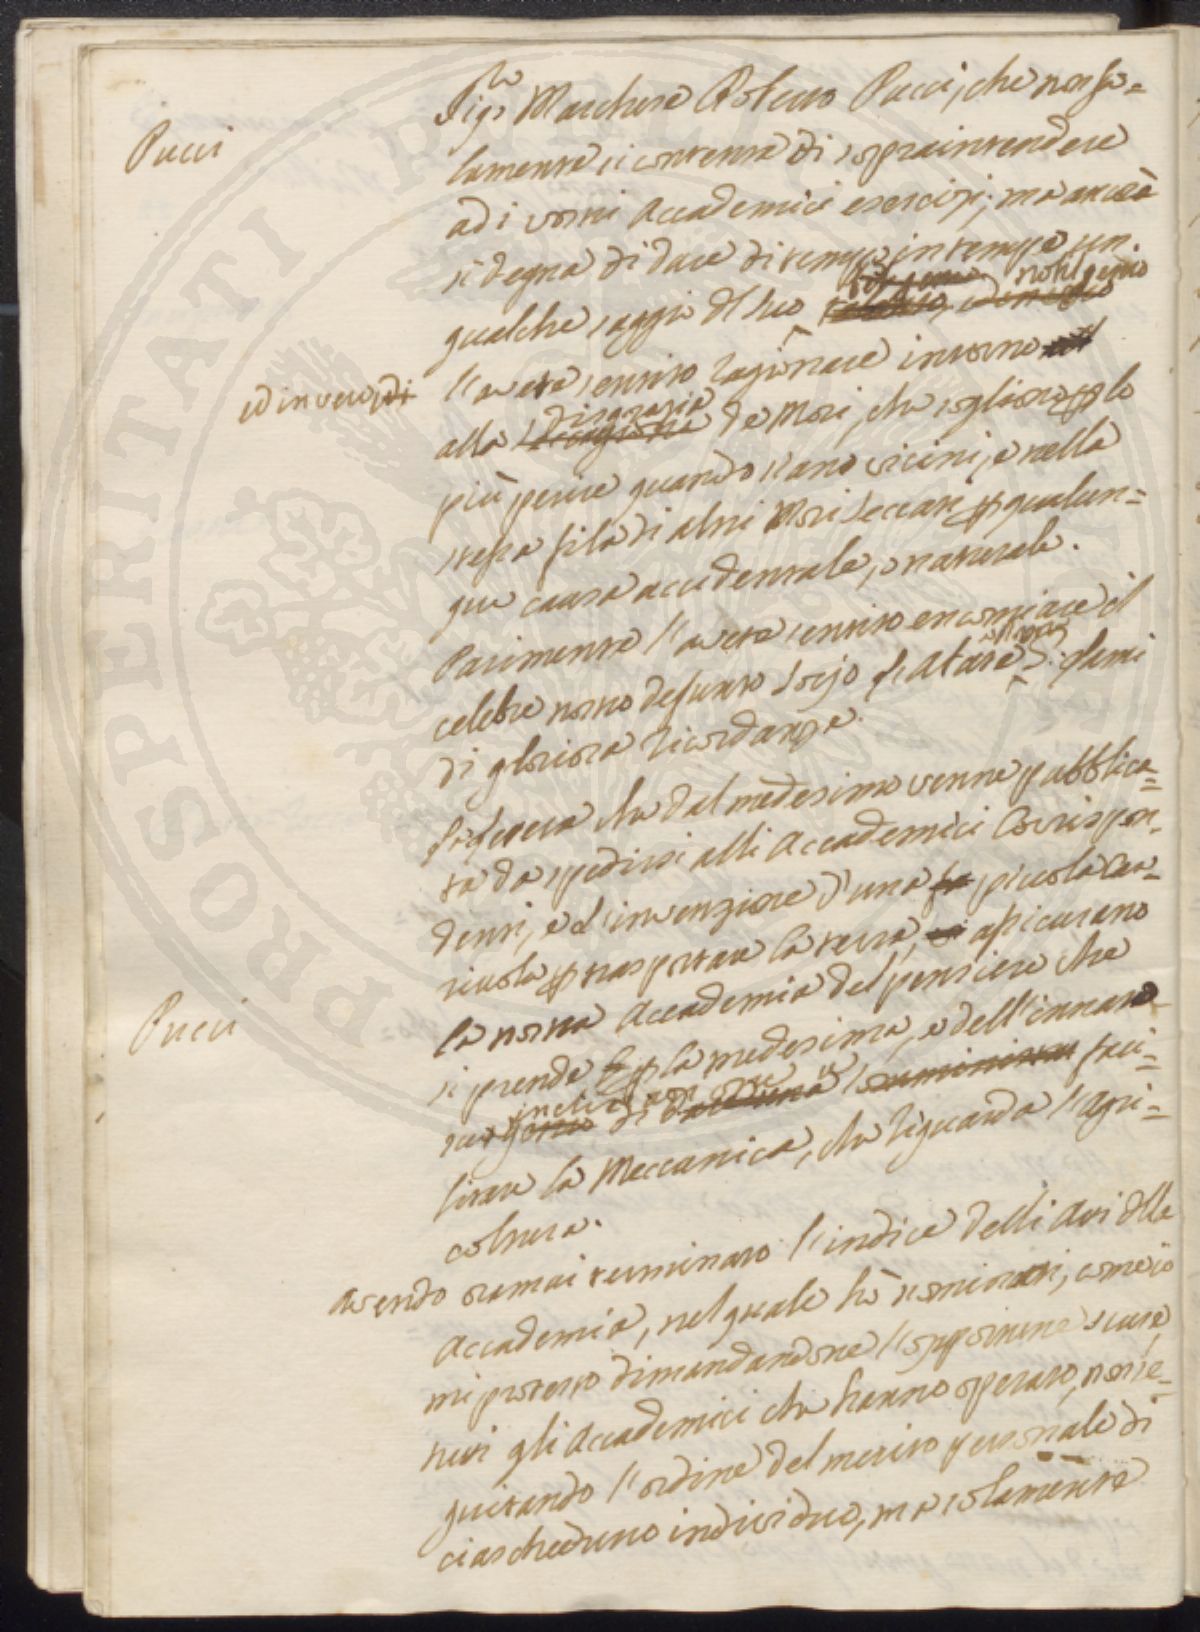 Sig.re Marchese Pucci, che non so=
Pucci
lamente si contenta di sopraintendere
ad i vostri Accademici esercizj; ma ancora
si degna di dare di tempo in tempo un
qualche saggio del suo nobil genio
ed invero l'avete sentito ragionare intorno
alla disgrazia de Mori, che sogliono per lo
più perire quando siano vicini, e nella
stessa fila di altri Mori seccati per qualun=
que causa accidentale, o naturale.
Parimente l'avete sentito encomiare il
celebre nostro defunto Socio
di gloriosa ricordanza.
che dal medesimo venne pubblica=
ta da spedirsi alli Accademici Corrispon=
denti, e l'invenzione d'una piccola Car=
riuola per trasportare la terra, assicurano
Pucci
la nostra Accademia del pensiere che
si prende per la medesima, e dell'innata
inclinazione di faci=
litare la Meccanica, che riguarda l'Agri=
coltura.
Avendo oramai terminato l'indice delli Atti della
Accademia, nel quale hò nominati, come io
mi protesto dimandandone l'opportune scuse,
tutti gli Accademici che hanno operato, non se=
guitando l'ordine del merito personale di
ciascheduno individuo, ma solamente